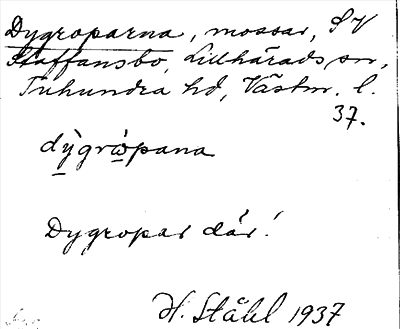 Dygroparna, mossar, SV
Staffansbo, Lillhärads sn,
Tuhundra hd, Västm. l.
37.
dỳgrώpana
Dygropar där!
H. Ståhl 1937